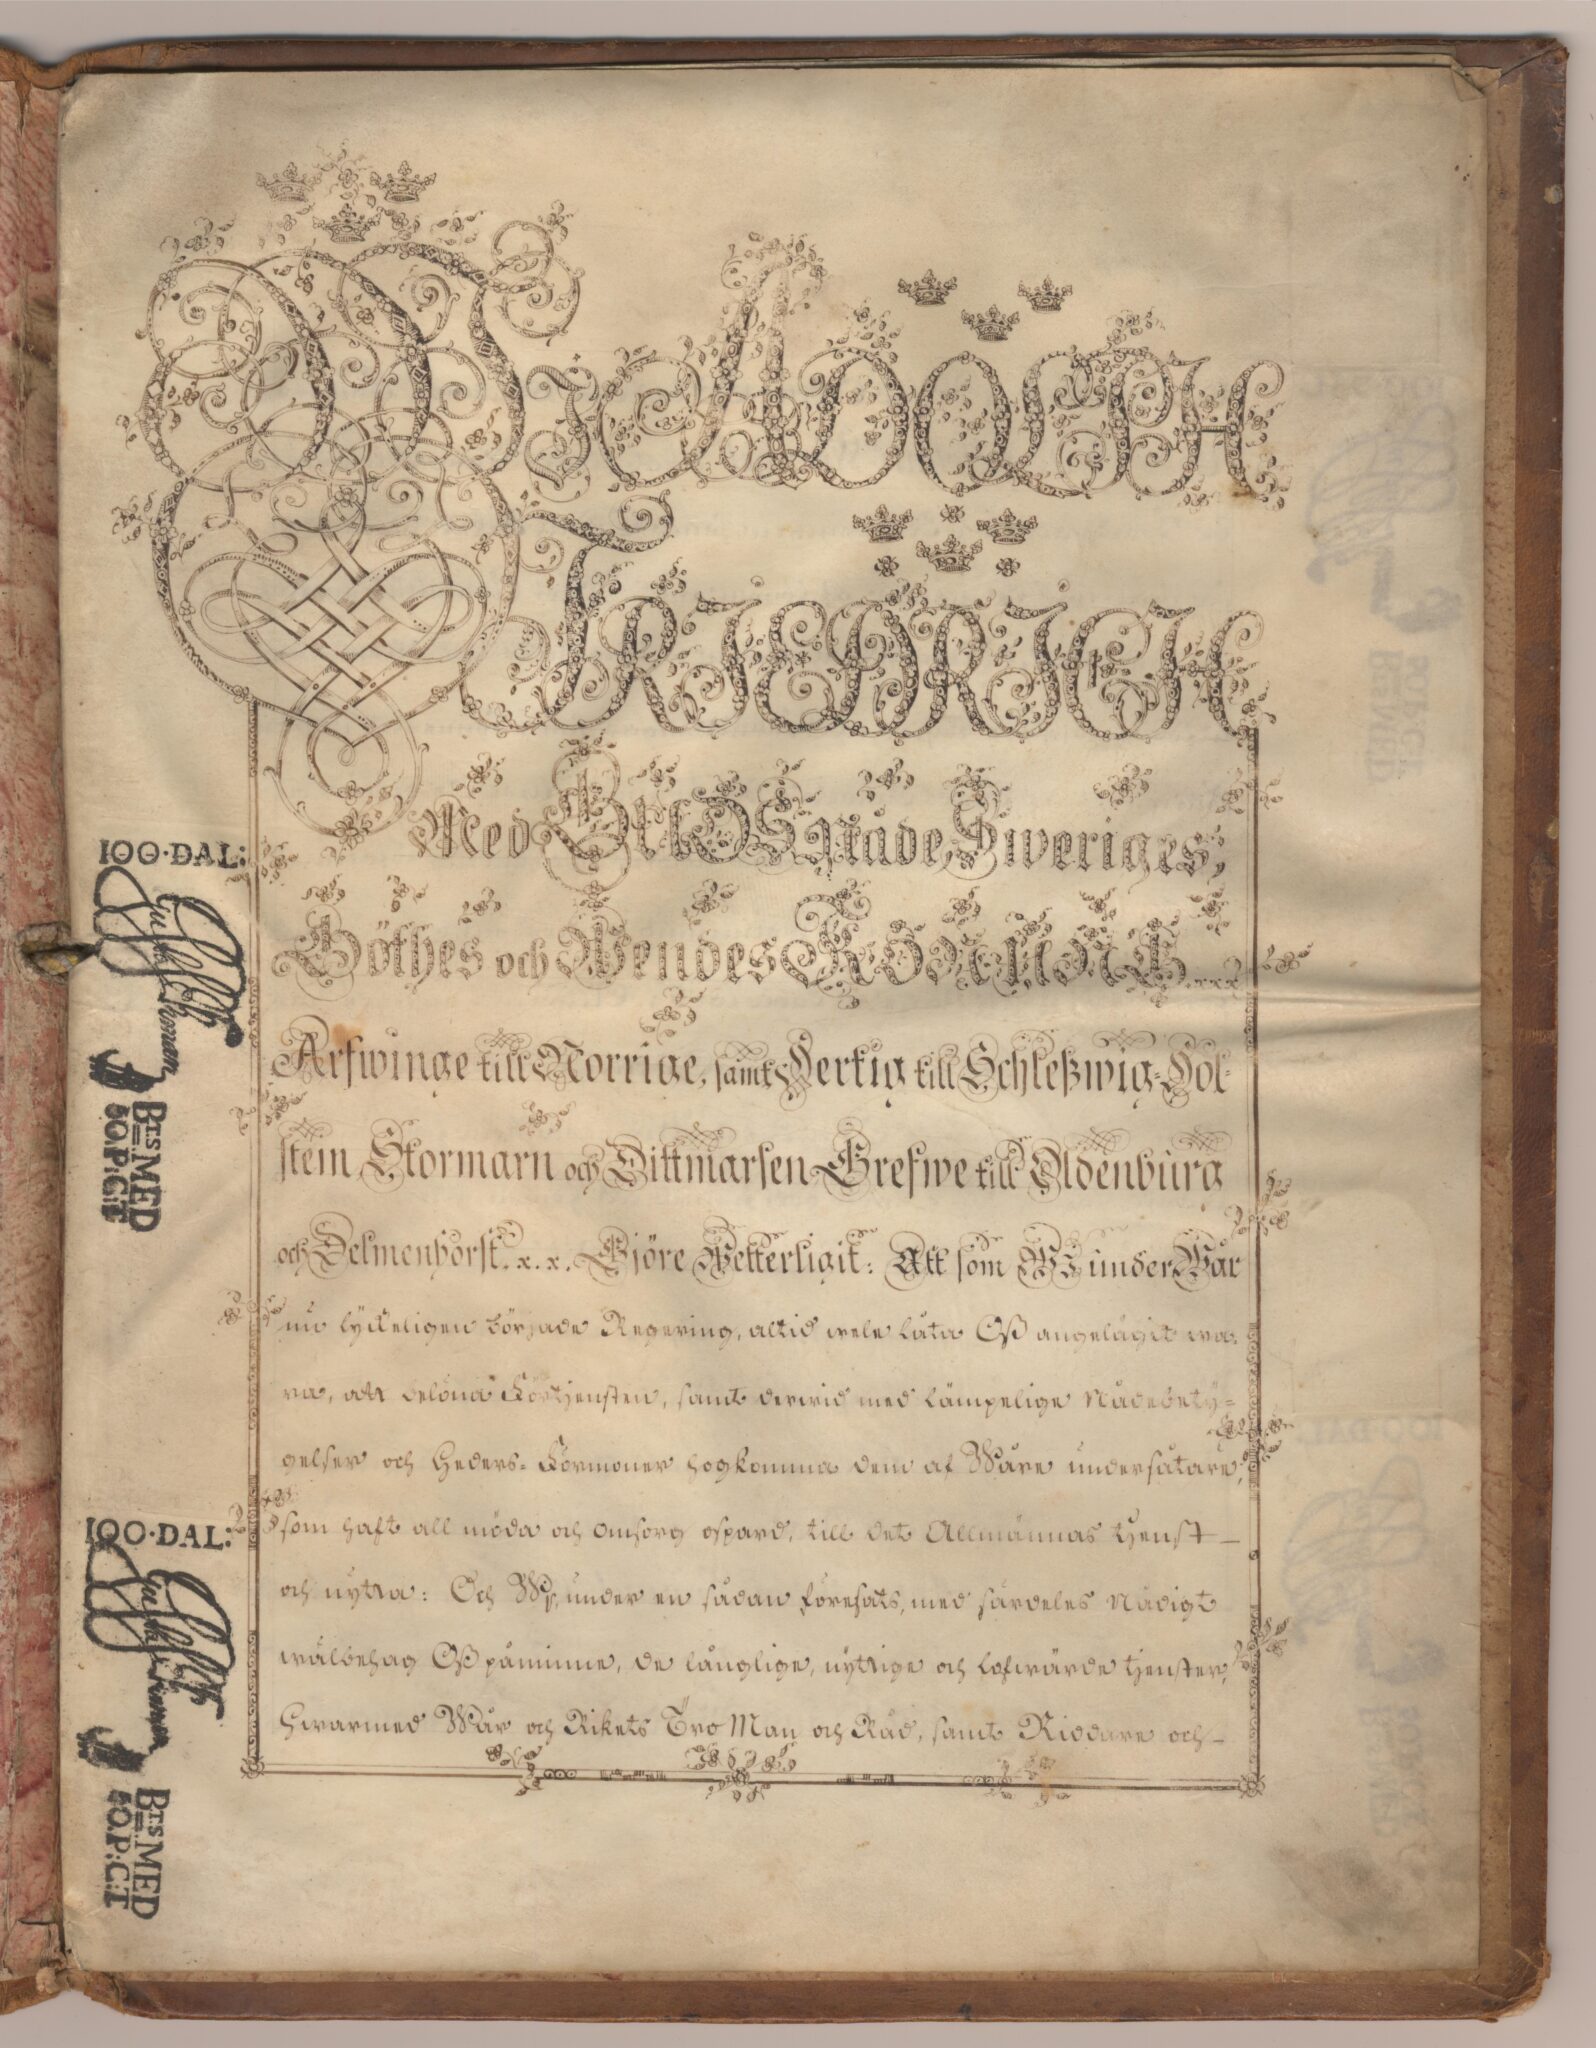 Wi ADOLPH
FRIEDRICH
Med GUDS Nåde, Sweriges,
Göthes och Wendes KONUNG. x.x.x.
Arfwinge till Norrige, samt Hertig till Schleßwig-Hol-
stein, Stormarn och Dittmarsen, Grefwe till Oldenburg
och Delmenhorst. x. x. Gjöre Wetterligit: Att som WI under Wår
nu lyckeligen började Regering, altid wele låta Oß angelägit wa-
ra, att belöna Förtjensten, samt derwid med lämpelige Nådebety-
gelser och Heders-Förmoner hogkomma dem af Wåre undersåtare,
som haft all möda och omsorg ospard, till det Allmännas tjenst
och nytta: Och Wj, under en sådan föresats, med särdeles Nådigt
wälbehag Oß påminne, de långlige, nyttige och lofwärde tjenster,
Hwarmed Wår och Rikets Tro Man och Råd, samt Riddare och
100·DAL:
BTS MED
50.P:C:T
100·DAL:
BTS MED
50.P:C:T